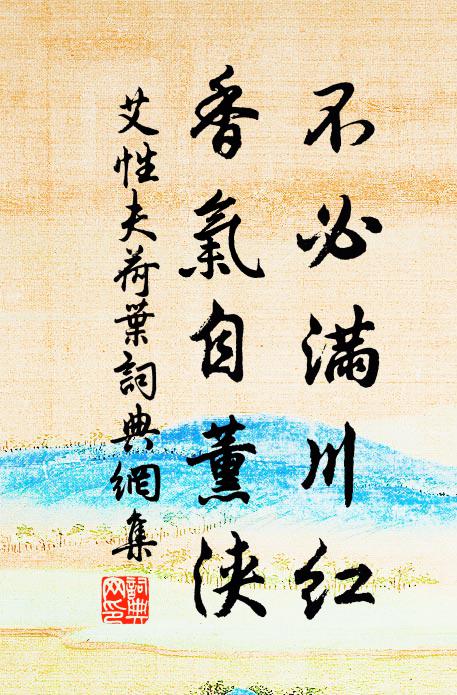 不必滿川紅
香氣自薰浹
艾性夫荷葉詞典網集
詞典網印